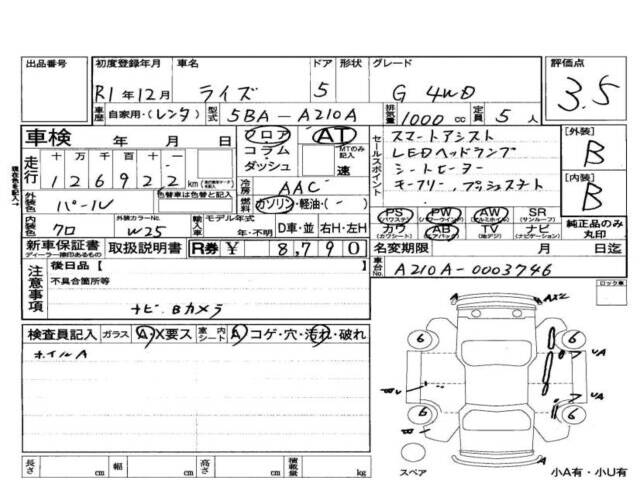 出品番号 初度登録年月 車名 ドア 形状 グレード 評価点
R1年12月 ライズ 5 G 4WD 3.5
車歴 自家用・(レンタ) 型式 5BA-A210A 排気量 1000cc 定員 5人
車検 年 月 日 フロア AT
コラム MTのみ記入
ダッシュ 速
走行 十万千百十
126922km
冷房 AAC
外装色 パール 色替車は元色
燃料 ガソリン・軽油・( - )
内装色 クロ 外装カラーNo. W25 輸入車 モデル年式 年・不明 D車・並 右H・左H
新車保証書 ディーラー捺印あるもの 取扱説明書 R券 ¥ 8,790
セールスポイント
スマートアシスト
LEDヘッドランプ
シートヒーター
キーフリー、プッシュスタート
PS (パワステ) PW (パワーウインド) AW (アルミホイル) SR (サンルーフ)
カワ (カワシート) AB (エアバック) TV (地デジ) ナビ (ナビゲーション)
[外装] B
[内装] B
純正品のみ丸印
名変期限 月 日迄
車台No. A210A-0003746
注意事項
後日品【 】
不具合箇所等
ナビ、Bカメラ
ロック車
検査員記入 ガラス A・X要ス 室内 シート A コゲ・穴・汚れ・破れ
ホイルA
AX2
6 6
UA
UA
6 6
スペア
小A有・小U有
長さ cm 幅 cm 高さ cm 積載量 kg